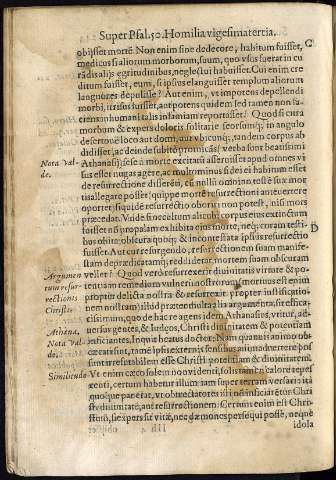 Super Psal. 50. Homilia vigesimatertia.
obijsset mortē. Non enim sine dedecore, habitum fuisset,
C
medicus si aliorum morborum, suum, quo vsus fuerat in cu-
ditum fuisset, eum, si ipsius languisset templum aliorum
languores depulisse? Aut enim, vt impotens depellendi
morbi, irrisus fuisset, aut potens quidem sed tamen non
humani talis infamiam reportasset? Quod si cura
morbum & expers doloris solitarie seorsumq; in angulo
deserto ve loco aut domi, aut vbicunq;, tandem corpus ab
didisset, ac deinde subito promicās (verba sunt beatissimi
Nota val-
Athanasij) sese à morte excitatū asseruisset apud omnes vi
de.
sus esset nugas agere, ac multominus fides ei habitum esset
de resurrectione disserēti, cū nullū omnino testē suæ mor
tis allegare posset; quippe mortē resurrectioni anteuertere
oportet, siquidē resurrectio oboriri non potest, nisi mors
præcedat. Valde si nec eltum alicubi corpus eius extinctum
fuisset nec propalam exhibita eius morte, neq; coram testi-
D
bus obita, obscura quoq; & incontestata ipsius resurrectio
fuisset. Aut cur resurgendo, resurrectionem suam manife-
stam deprædicatamq; reddideret, mortem suam obscuram
Argumen
vellet? Quod verò resurrexerit diuinitatis virtute & po-
tum resur-
tentia in remedium vulnerū nostrorum, mortuus est enim
rectionis
propter delicta nostra & resurrexit propter iustificatio-
Christi.
nem nostram: illud præter multa alia argumēta, sit effica-
cissimum, quo de hac re agens idem Athanasius, vtitur, ad-
Athāna.
uersus gentes, & Iudęos, Christi diuinitatem & potentiam
Nota val-
inficiantes. Inquit beatus doctor. Nam quanuis animo ob-
de.
cæcati sint, tamē ipsi externis sensibus intueri
sint irrefutabilem esse Christi potentiam & diuinitatem.
Similitudo
Vt enim cæco solem non videnti, solis tamen calore repes
centi, certum habetur illum iam super terram versari: ita
quoque par erat, vt obtrectatores isti non inficiarentur Chri
sti diuinitatē, aut resurrectionem. Certum enim est Chri-
stum, si expers sit vitæ, nec dæmones persequi posse, neque
Hh 4
idola